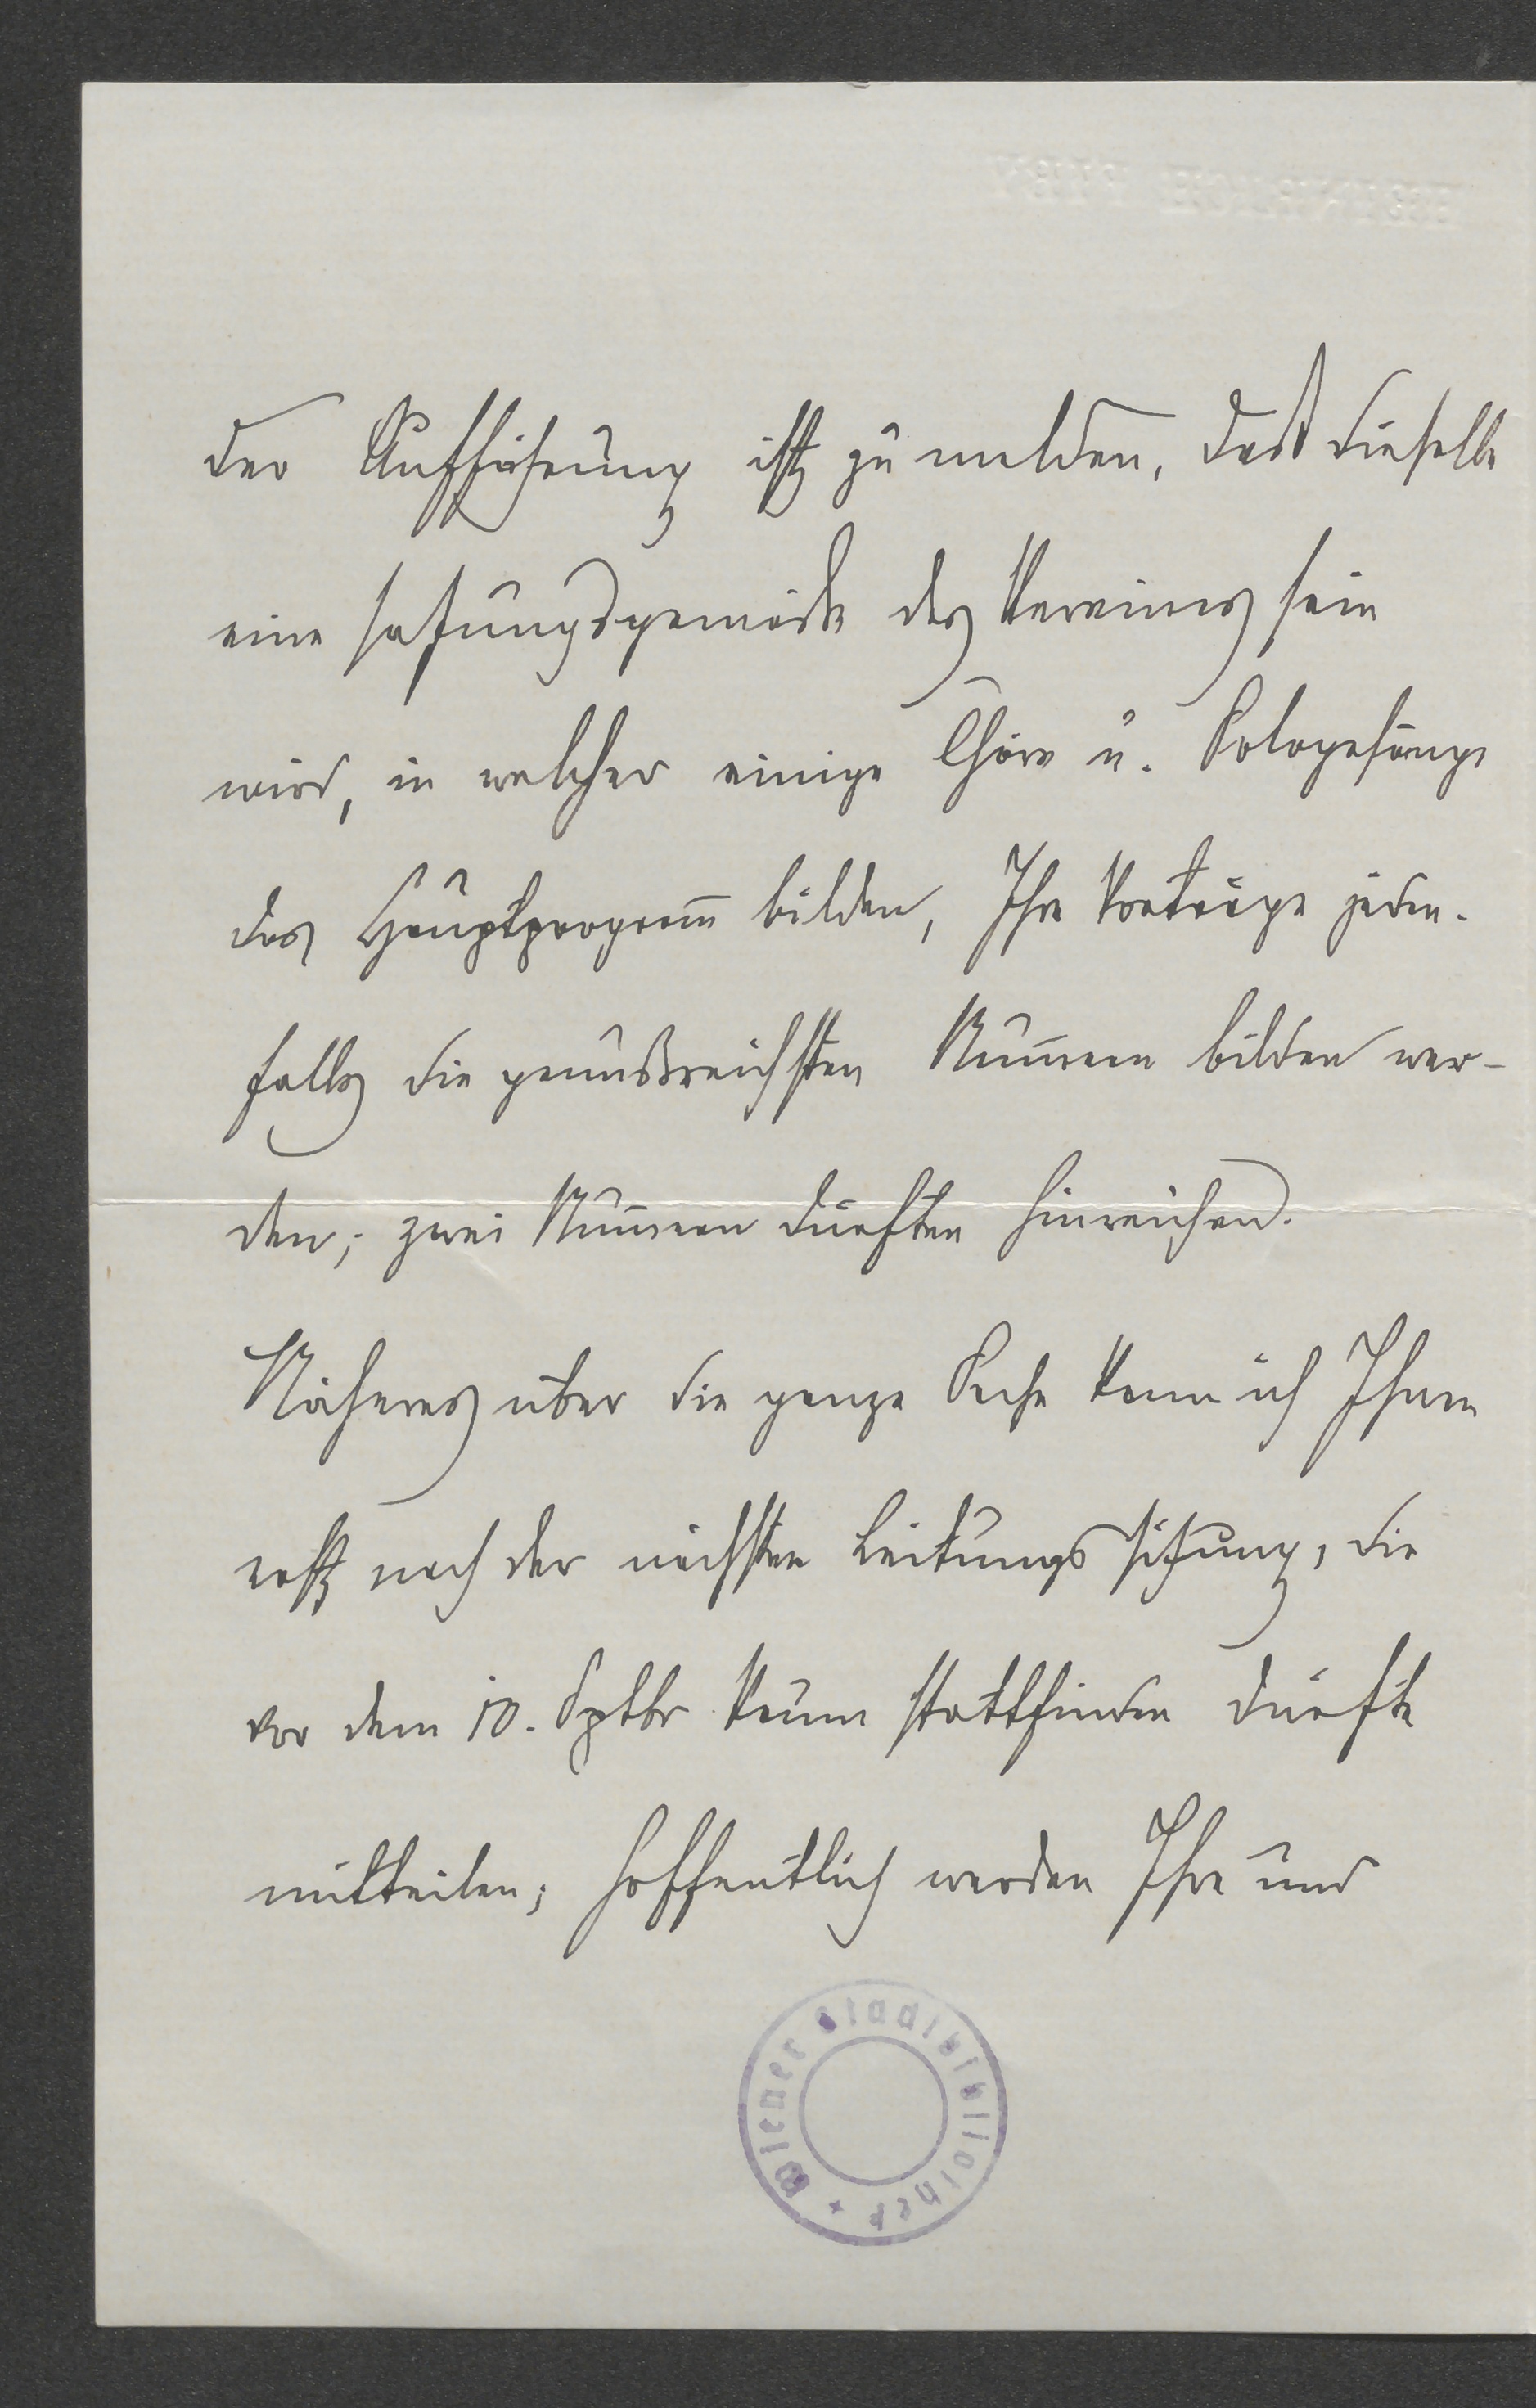 der Aufführung ist zu melden, daß dieselbe
eine satzungsgemäße des Vereines sein
wird, in welcher einige Chöre u. Sologesänge
das Hauptprogram̅ bilden, Ihre Vorträge jeden-
falls die genußreichsten Num̅ern bilden wer-
den; zwei Num̅ern dürften hinreichen.
Näheres über die ganze Sache kann ich Ihnen
erst nach der nächsten Leitungssitzung, die
vor dem 10. Sptbr kaum stattfinden dürfte
mitteilen; hoffentlich werden Ihre und
Wiener Stadtbibliothek *